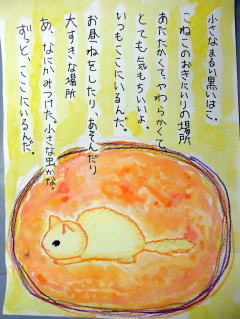 小さなまるい黒いはこ。
こねこのおきにいりの場所
あたたかくて、やわらかくて
とても気もちいいよ。
いつもここにいるんだ。
お昼ねをしたり、あそんだり
大すきな場所
あ、なにかみつけた、小さな虫かな。
ずっと、ここにいるんだ。